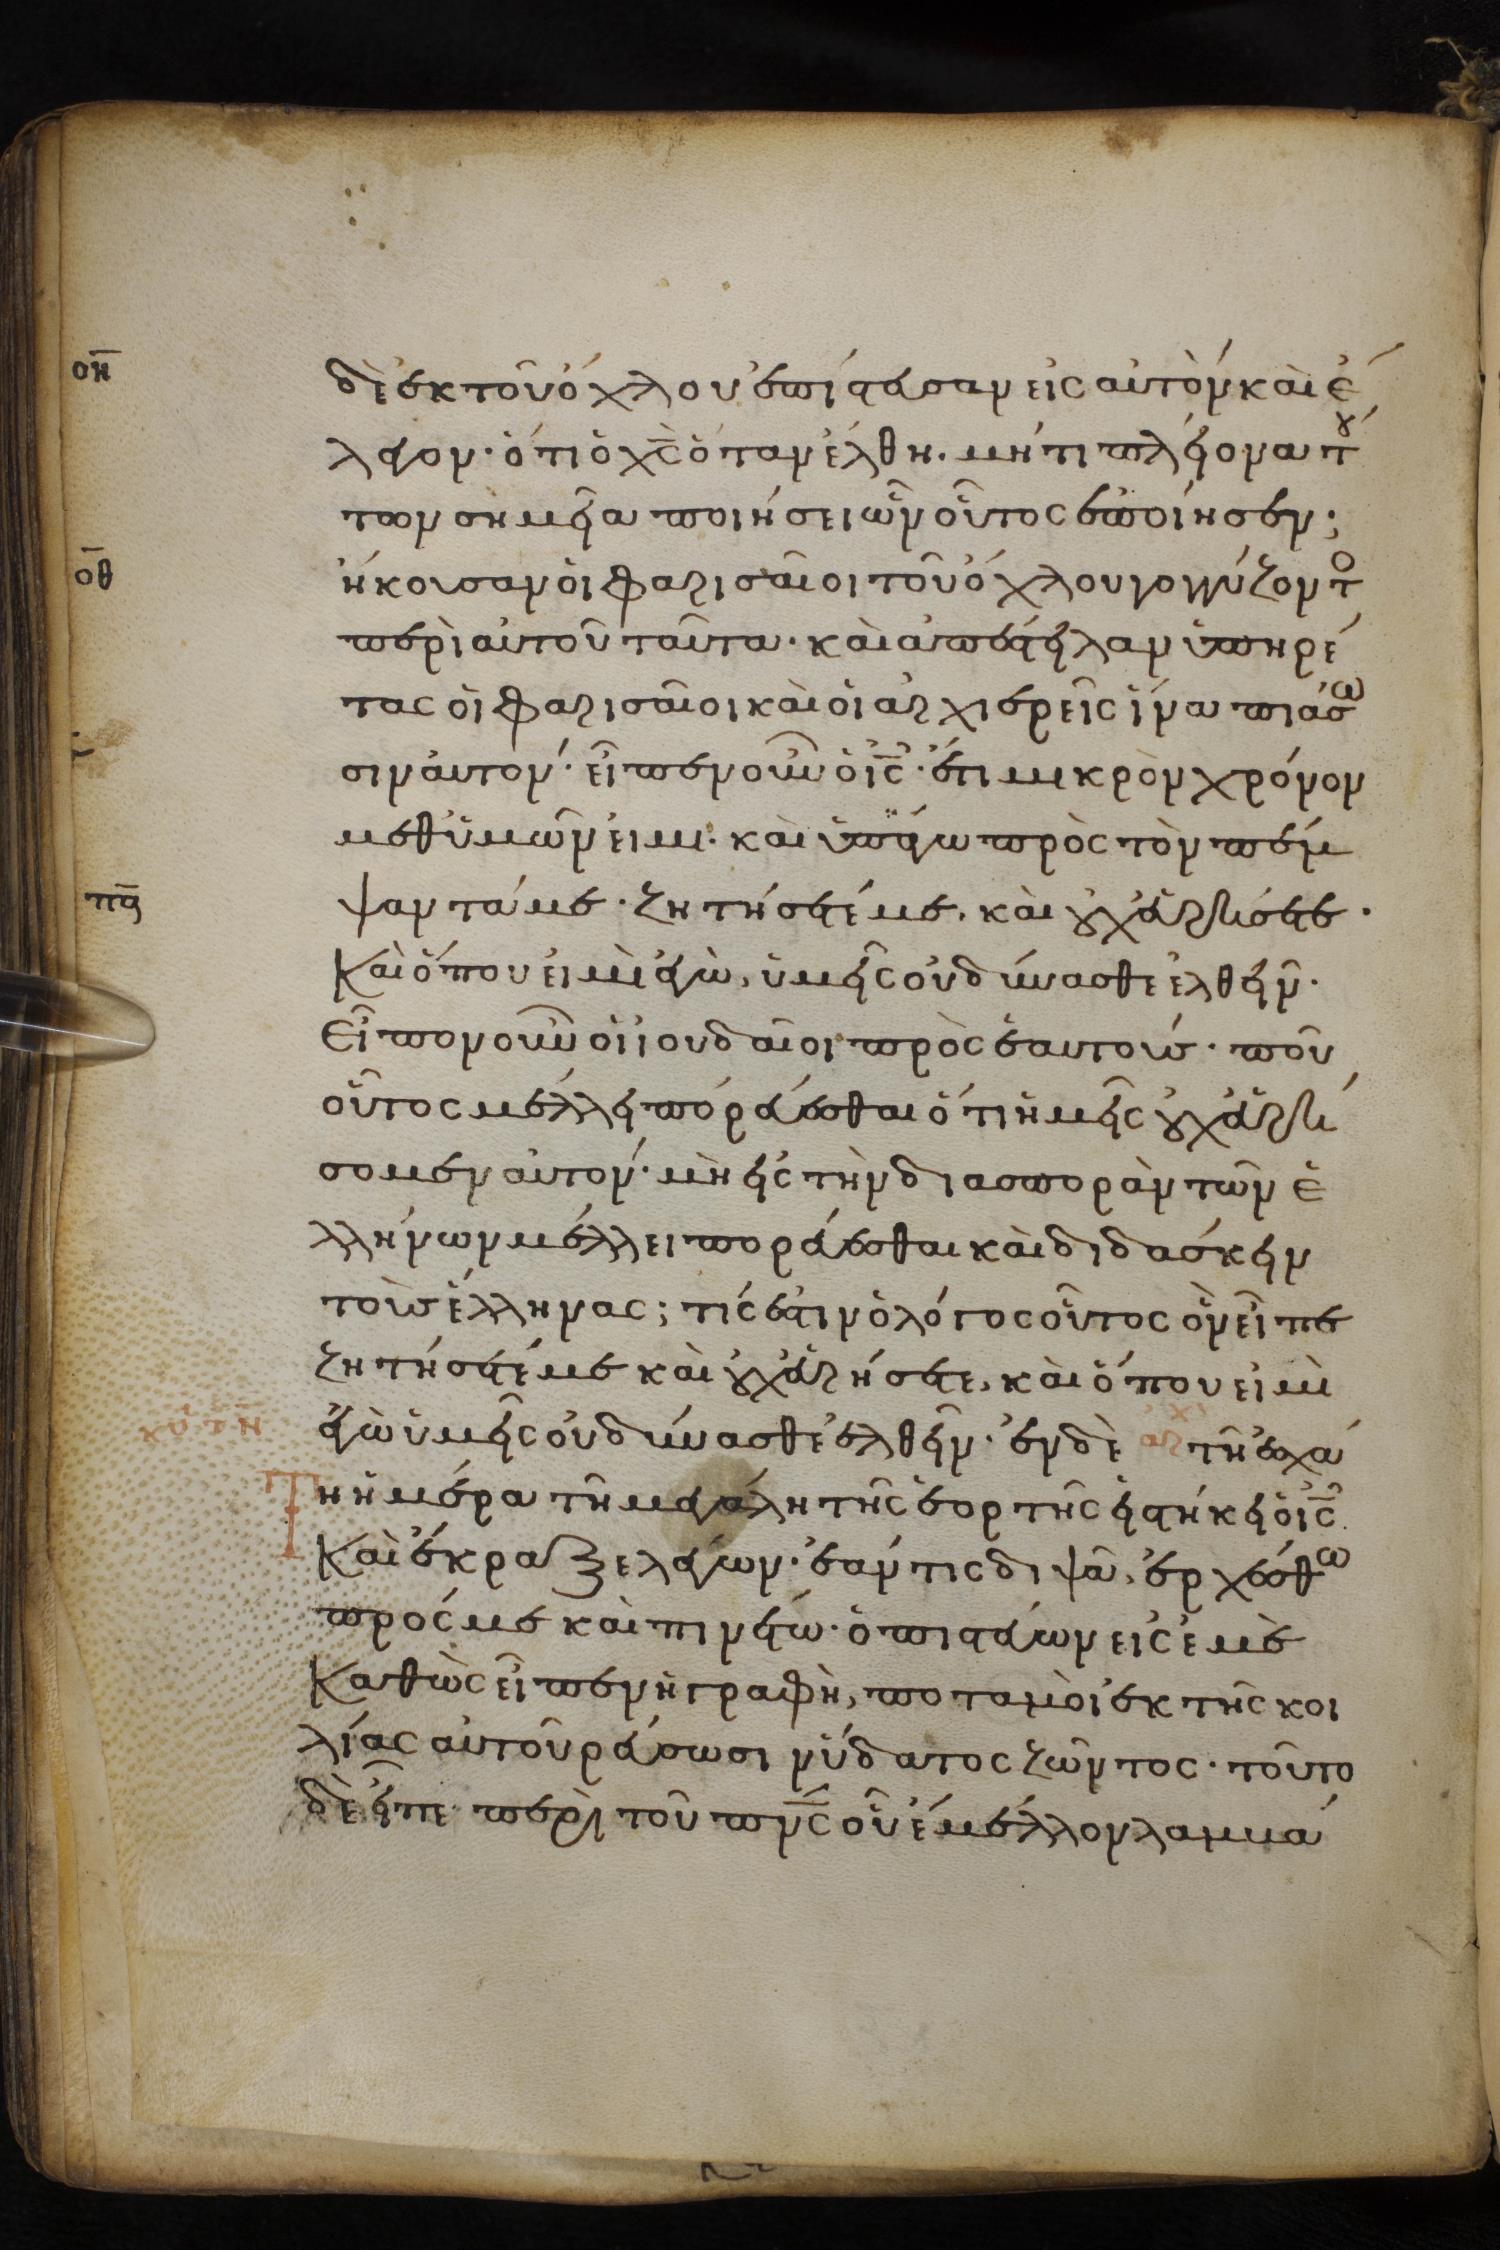 οη
δὲ ἐκ τοῦ ὄχλου ἐπίστευσαν εἰς αὐτόν καὶ ἔ
λεγον· ὅτι ὁ χς ὅταν ἔλθη. μήτι πλείονα τού
των σημεῖα ποιήσει ὧν οὗτος ἐποίησεν;
οθ
ἤκουσαν οἱ φαρισαῖοι τοῦ ὄχλου γογγύζοντο
περὶ αὐτοῦ ταῦτα. καὶ ἀπέστειλαν ὑπηρέ
τας οἱ φαρισαῖοι καὶ οἱ ἀρχιερεῖς ἵνα πιάσω
σιν αὐτόν· εἶπεν οὖν ὁ ις· ἔτι μικρὸν χρόνον
μεθ ὑμῶν εἰμι. καὶ ὑπάγω πρὸς τὸν πέμ
πα
ψαντά με· ζητήσετέ με, καὶ οὐχ εὑρήσετε·
Καὶ ὅπου εἰμὶ ἐγὼ, ὑμεῖς οὐ δύνασθε ἐλθεῖν·
Εἶπον οὖν οἱ ἰουδαῖοι πρὸς ἑαυτούς· ποῦ
οὗτος μέλλει πορεύεσθαι ὅτι ἡμεῖς οὐχ εὑρή
σομεν αὐτόν· μὴ εἰς τὴν διασπορὰν τῶν ἑ
λλήνων μέλλει πορεύεσθαι καὶ διδάσκειν
τοὺς ἕλληνας; τίς ἐστιν ὁ λόγος οὗτος ὃν εἶπε
ζητήσετέ με καὶ οὐχ εὑρήσετε, καὶ ὅπου εἰμὶ
ἐγὼ ὑμεῖς οὐ δύνασθε ἐλθεῖν· ἐν δὲ αρχ τῆ ἐσχά
τη ἡμέρα τῆ μεγάλη τῆς ἑορτῆς εἱστήκει ὁ ις
Καὶ ἔκραξε λέγων· ἐάν τις διψᾶ, ἐρχέσθω
πρός με καὶ πινέτω· ὁ πιστεύων εἰς ἐμὲ
Καθὼς εἶπεν ἡ γραφὴ, ποταμοὶ ἐκ τῆς κοι
λίας αὐτοῦ ῥεύσωσιν ὕδατος ζῶντος· τοῦτο
δὲ εἶπε περὶ τοῦ πνς οὗ ἔμελλον λαμβά